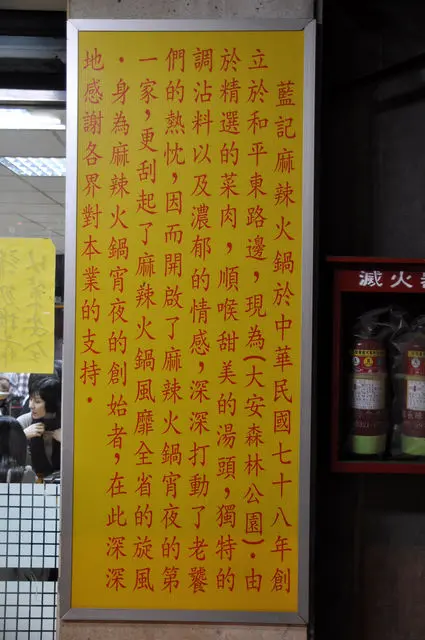 藍記麻辣火鍋於中華民國七十八年創
立於和平東路邊,現為(大安森林公園)．由
於精選的菜肉,順喉甜美的湯頭,獨特的
調沾料以及濃郁的情感,深深打動了老饕
們的熱忱,因而開啟了麻辣火鍋宵夜的第
一家,更刮起了麻辣火鍋風靡全省的旋風
．身為麻辣火鍋宵夜的創始者,在此深深
地感謝各界對本業的支持．
滅火器